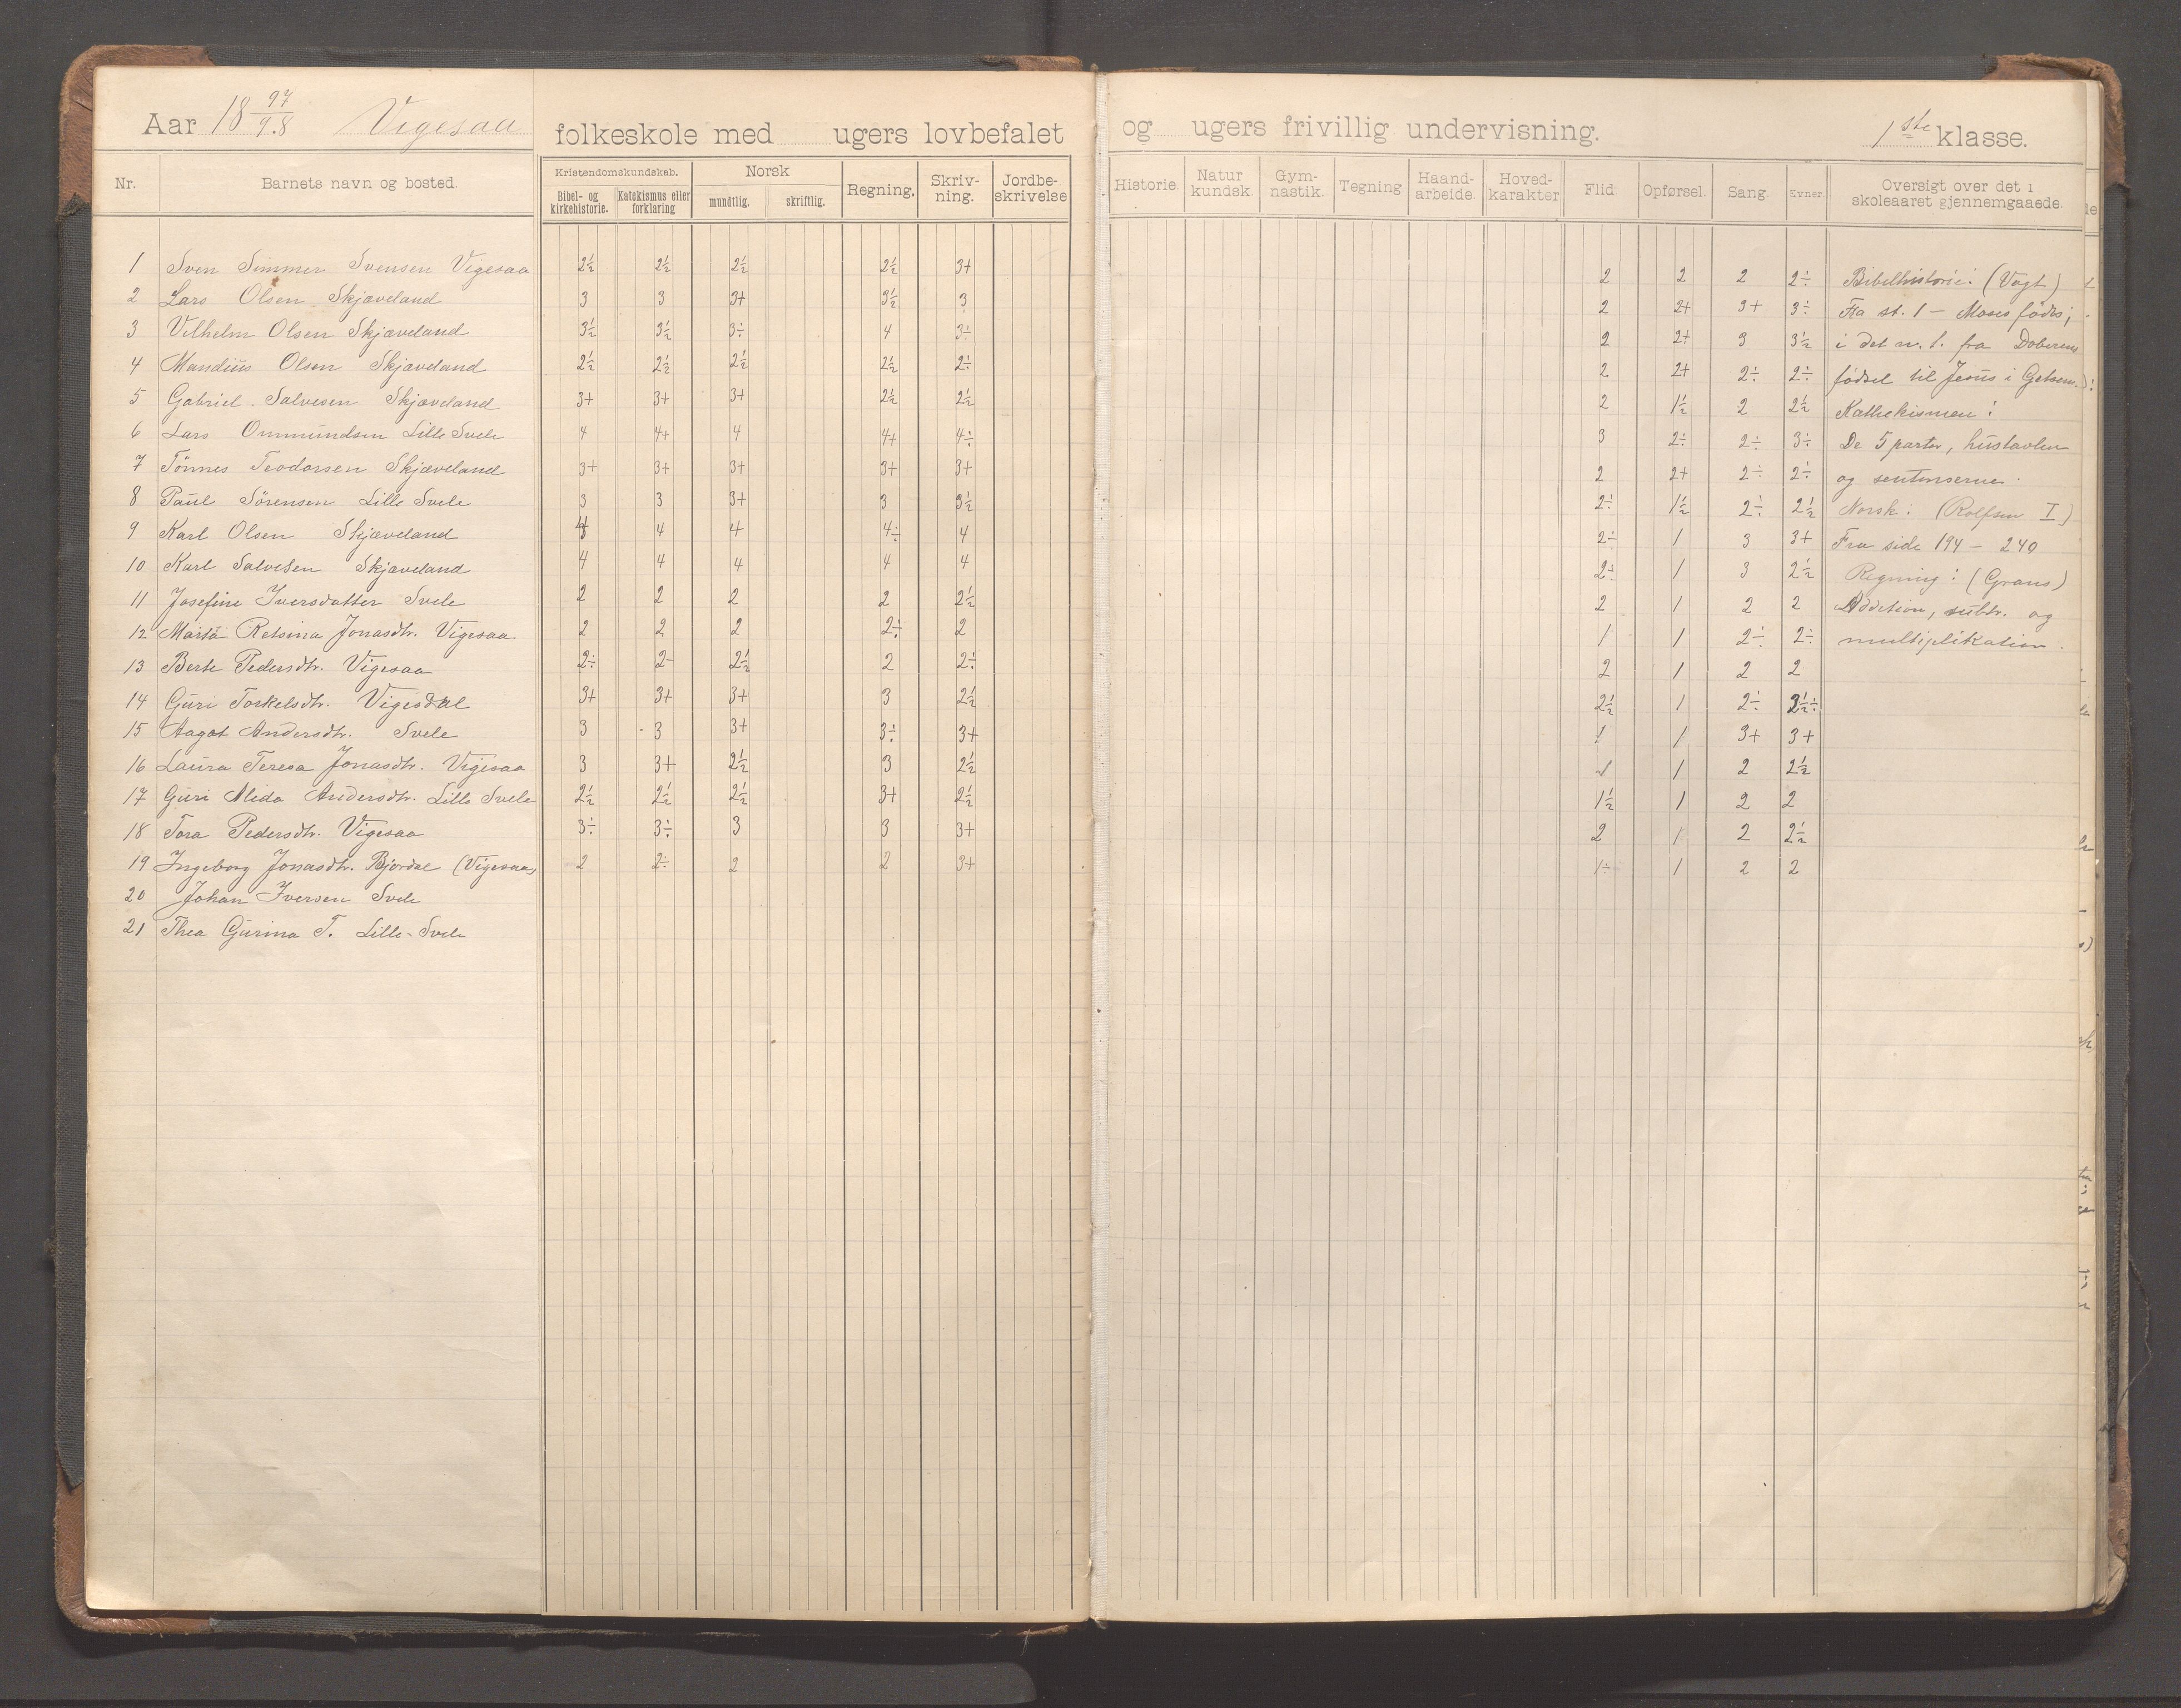 Aar 18 97/98 Vigesaa folkeskole med ugers lovbefalet og ugers frivillig undervisning. 1ste klasse.
Nr. Barnets navn og bosted. Kristendomskundskab. Norsk Regning. Skriv-ning. Jordbe-skrivelse Historie. Natur kundsk. Gym-nastik. Tegning Haand-arbeide. Hoved-karakter Flid. Opførsel. Sang. Evner. Oversigt over det i skoleaaret gjennemgaaede.
Bibel- og kirkehistorie. Katekismus eller forklaring mundtlig. skriftlig.
1 Sven Simmer Svensen Vigesaa 2½ 2½ 2½ 2½ 3+ 2 2 2 2÷ Bibelhistorie: (Vogt)
2 Lars Olsen Skjæveland 3 3 3+ 3½ 3 2 2+ 3+ 3÷ Fra st. 1 – Moses fødes;
3 Vilhelm Olsen Skjæveland 3½ 3½ 3÷ 4 3÷ 2 2+ 3 3½ i det n. t. fra Døberens
4 Mandius Olsen Skjæveland 2½ 2½ 2½ 2½ 2÷ 2 2+ 2÷ 2÷ fødsel til Jesus i Getsem.
5 Gabriel Salvesen Skjæveland 3+ 3+ 3+ 2½ 2½ 2 1½ 2 2½ Kathekismen:
6 Lars Ommundsen Lille Svele 4 4+ 4 4+ 4÷ 3 2÷ 2÷ 3÷ De 5 parter, hustavlen
7 Tønnes Teodorsen Skjæveland 3+ 3+ 3+ 3+ 3+ 2 2+ 2÷ 2÷ og sentenserne.
8 Paul Sørensen Lille Svele 3 3 3+ 3 3½ 2÷ 1½ 2÷ 2½ Norsk: (Rolfsen I)
9 Karl Olsen Skjæveland 4 4 4 4÷ 4 2÷ 1 3 3+ Fra side 194 – 240
10 Karl Salvesen Skjæveland 4 4 4 4 4 2÷ 1 3 2½ Regning: (Grans)
11 Josefine Iversdatter Svele 2 2 2 2 2½ 2 1 2 2 Addition, subtr. og
12 Marta Retsina Jonasdtr. Vigesaa 2 2 2 2÷ 2 1 1 2÷ 2÷ multiplikation.
13 Berte Pedersdtr. Vigesaa 2÷ 2- 2½ 2 2÷ 2 1 2 2
14 Guri Torkelsdtr. Vigesdal 3+ 3+ 3+ 3 2½ 2½ 1 2÷ 2½÷
15 Aagot Andersdtr. Svele 3 3 3+ 3÷ 3+ 1 1 3+ 3+
16 Laura Teresa Jonasdtr. Vigesaa 3 3+ 2½ 3 2½ 1 1 2 2½
17 Guri Alida Andersdtr. Lille Svele 2½ 2½ 2½ 3+ 2½ 1½ 1 2 2
18 Tora Pedersdtr. Vigesaa 3÷ 3÷ 3 3 3+ 2 1 2 2½
19 Ingeborg Jonasdtr. Bjordal (Vigesaa) 2 2÷ 2 2 3+ 1÷ 1 2 2
20 Johan Iversen Svele
21 Thea Gurina T. Lille-Svele